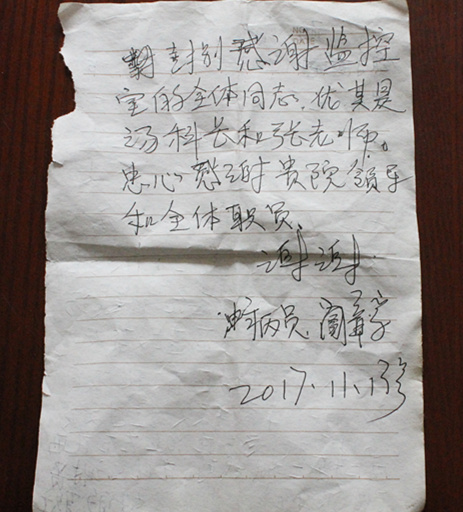 特别感谢监控
室的全体同志、优其是
汤科长和张老师。
忠心感谢贵院领导
和全体职员、
谢谢
病员
2017.11.13